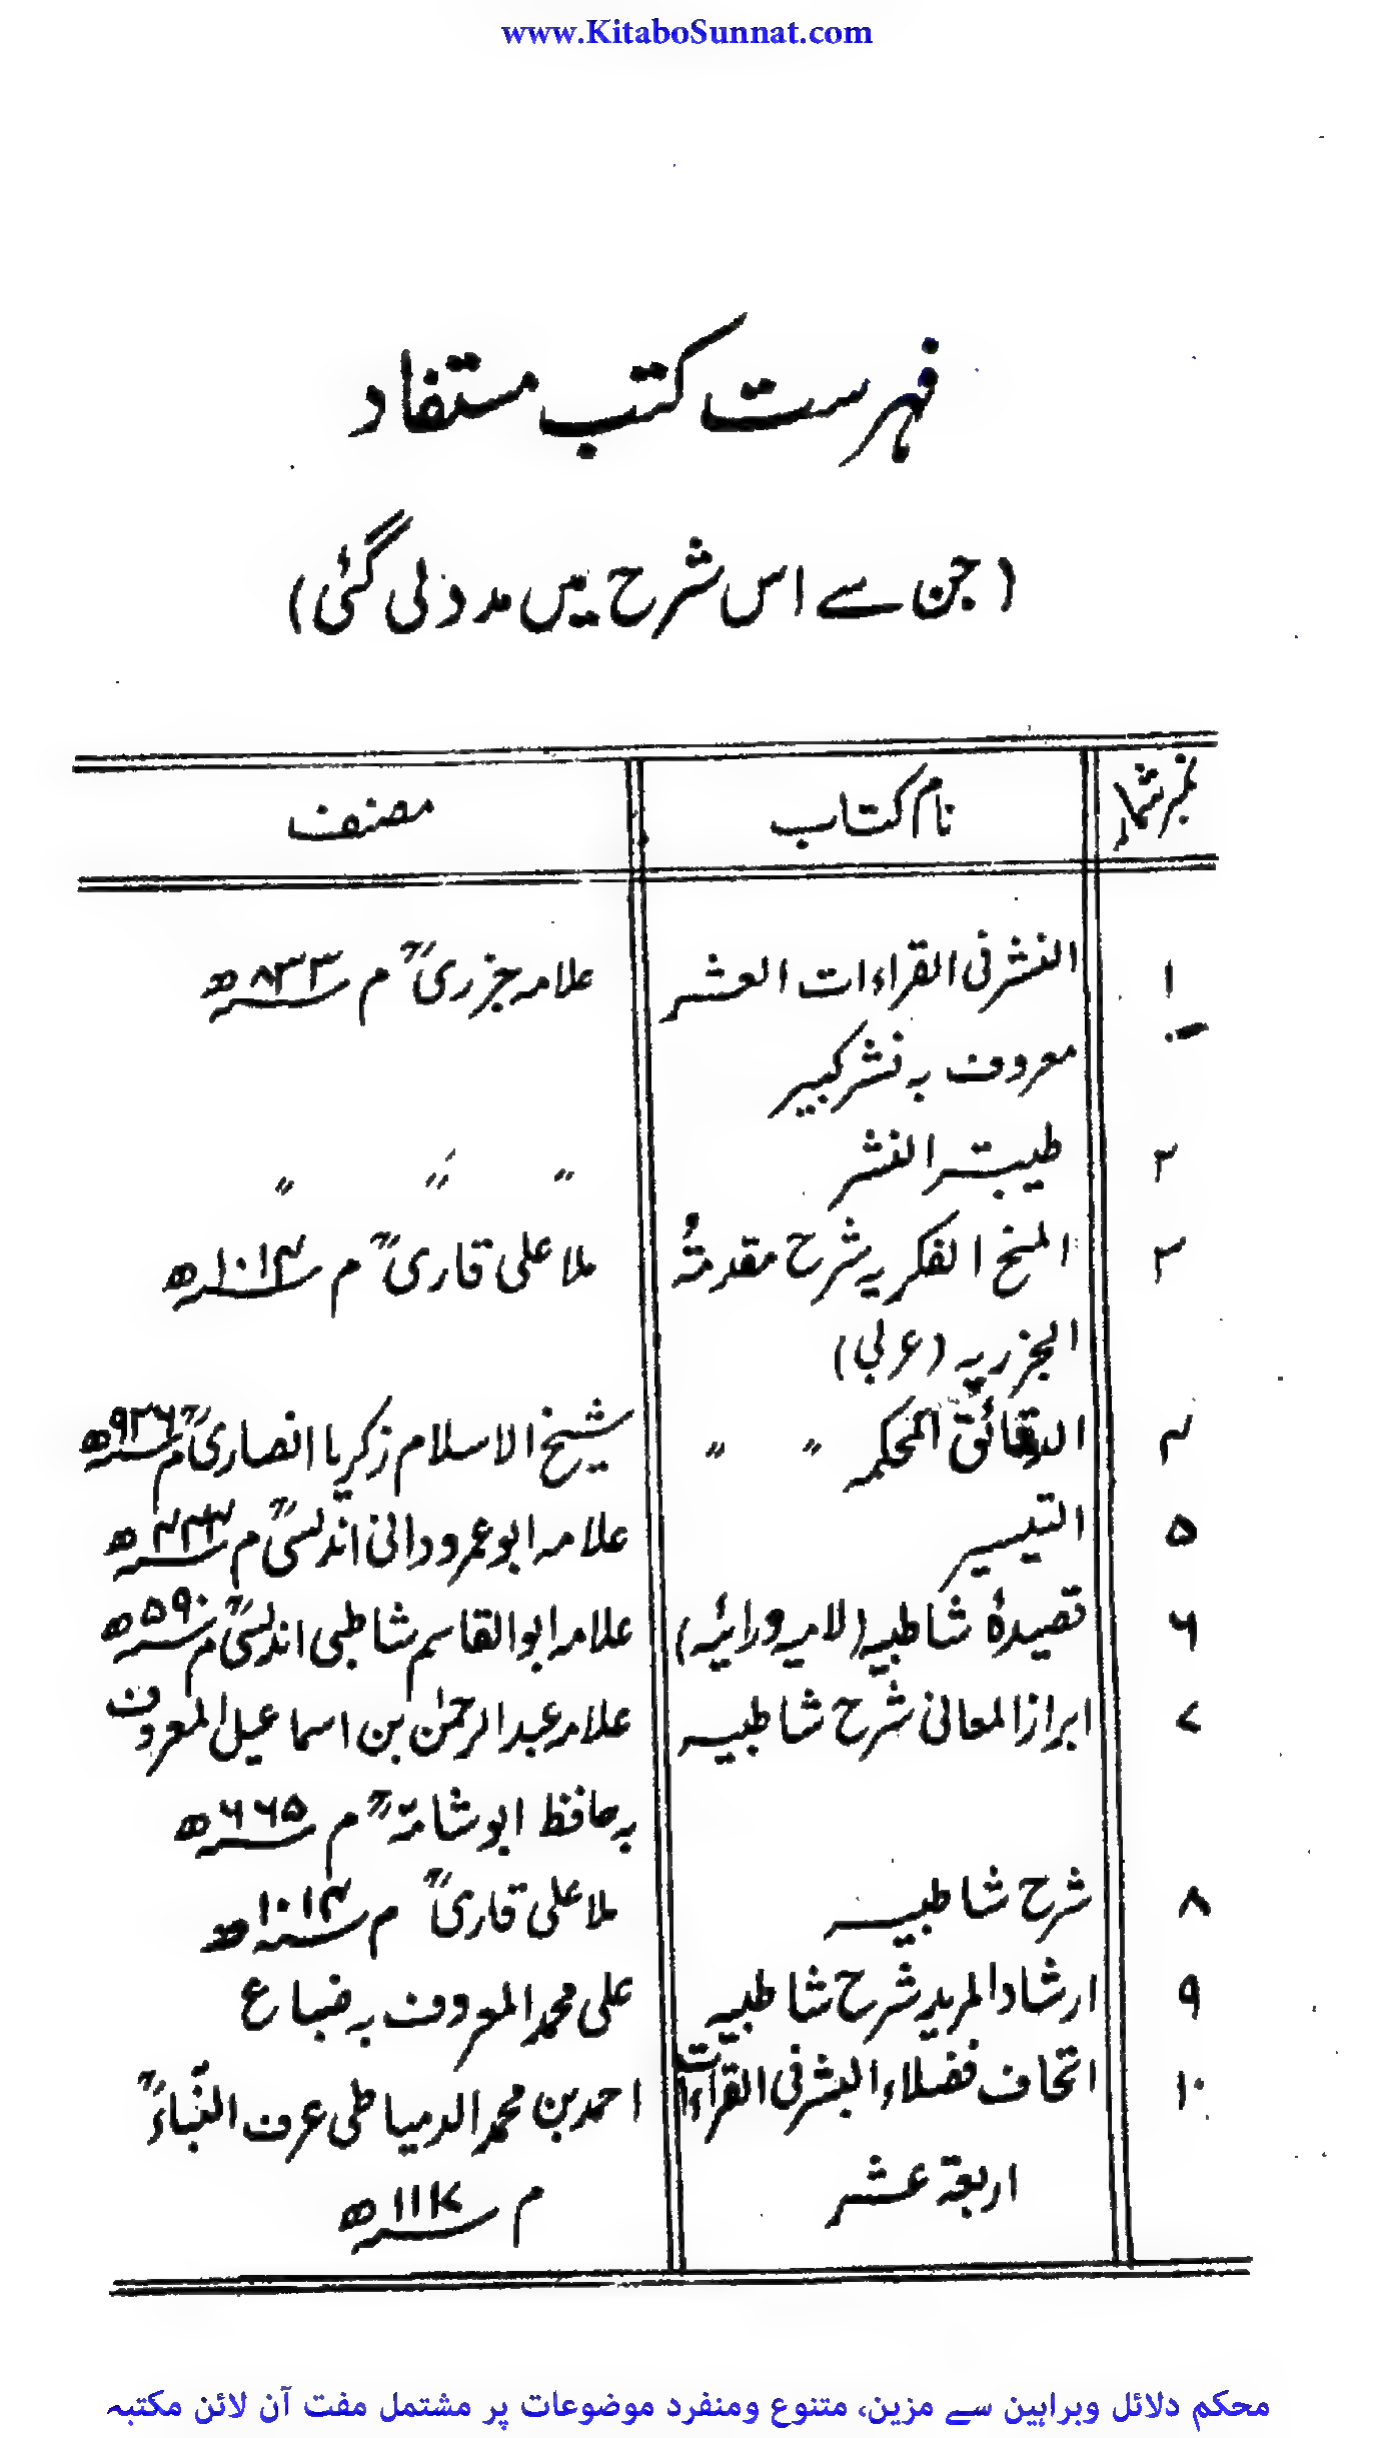 www.KitaboSunnat.com
فہرست کتب مستفاد
(جن سے اس شرح میں مدد لی گئی)
نمبر شمار نام کتاب مصنف
۱ النشر فی القراءات العشر علامہ جزریؒ م ۸۳۳ھ
معروف بہ نشر کبیر
۲ طیبۃ النشر " " "
۳ المنح الفکریہ شرح مقدمۃُ ملا علی قاریؒ م ۱۰۱۴ھ
الجزریہ (عربی)
۴ الدقائق المحکمہ " " شیخ الاسلام زکریا انصاریؒ م ۹۲۶ھ
۵ التیسیر علامہ ابو عمرو دانی اندلسیؒ م ۴۴۴ھ
۶ قصیدۂ شاطبیہ (لامیہ ورائیہ) علامہ ابو القاسم شاطبی اندلسیؒ م ۵۹۰ھ
۷ ابراز المعانی شرح شاطبیہ علامہ عبد الرحمٰن بن اسماعیل المعروف
بہ حافظ ابو شامۃؒ م ۶۶۵ھ
۸ شرح شاطبیہ ملا علی قاریؒ م ۱۰۱۴ھ
۹ ارشاد المرید شرح شاطبیہ علی محمد المعروف بہ ضباع
۱۰ اتحاف فضلاء البشر فی القراءات احمد بن محمد الدمیاطی عرف البنّاءؒ
اربعۃ عشر م ۱۱۱۷ھ
محکم دلائل وبراہین سے مزین، متنوع ومنفرد موضوعات پر مشتمل مفت آن لائن مکتبہ